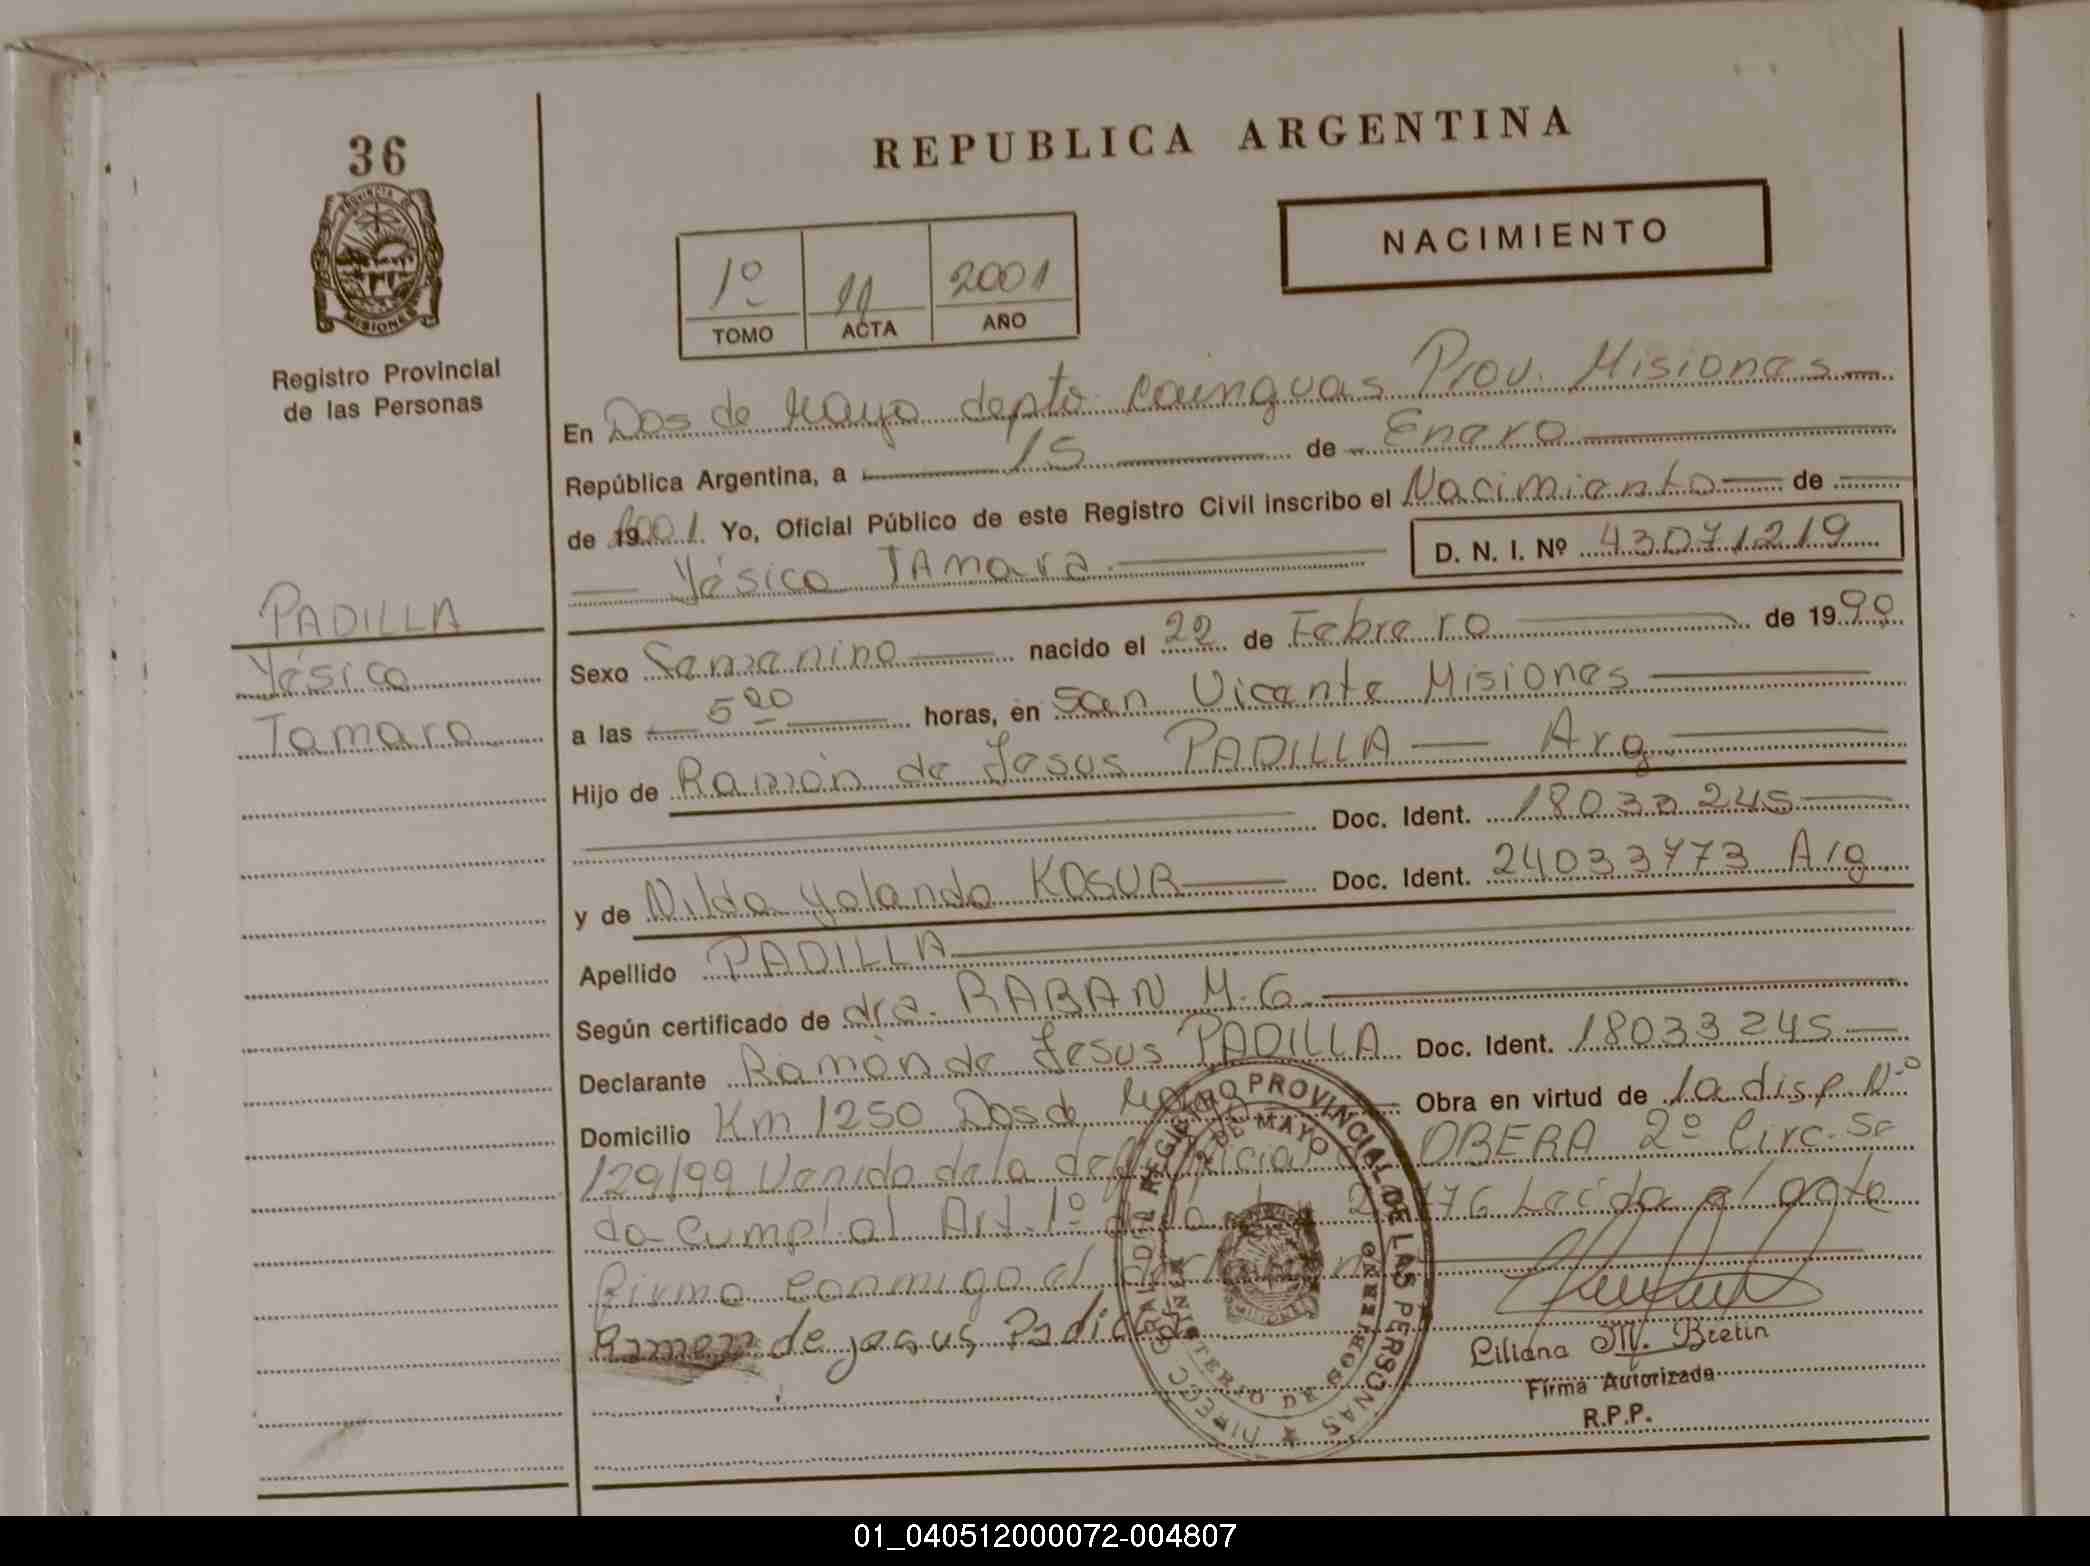 36
REPUBLICA ARGENTINA
PROVINCIA DE
MISIONES
NACIMIENTO
1º 11 2001
TOMO ACTA AÑO
Registro Provincial
de las Personas
En Dos de Mayo depto Cainguas Prov. Misiones
República Argentina, a 15 de Enero
de 2001. Yo, Oficial Público de este Registro Civil inscribo el Nacimiento de
Yésica TAmara D. N. I. Nº 43071219
PADILLA
Yésica
Tamara
Sexo Femenino nacido el 22 de Febrero de 1990
a las 5 20 horas, en San Vicente Misiones
Hijo de Ramón de Jesus PADILLA Arg
Doc. Ident. 18033245
y de Nilda Yolanda KOSUR Doc. Ident. 24033773 Arg
Apellido PADILLA
Según certificado de dra. RABAN M.G.
Declarante Ramón de Jesus PADILLA Doc. Ident. 18033245
Domicilio Km 1250 Dos de Mayo Obra en virtud de la disp. Nº
129/99 Venida de la OBERA 2º Circ. Se
da cumpl. al Art. 1º Leida el acta
firma conmigo el
Ramon de jesus Padilla
REGISTRO PROVINCIAL DE LAS PERSONAS
2 DE MAYO
MINISTERIO DE GOBIERNO
Liliana M. Bretin
Firma Autorizada
R.P.P.
01_040512000072-004807